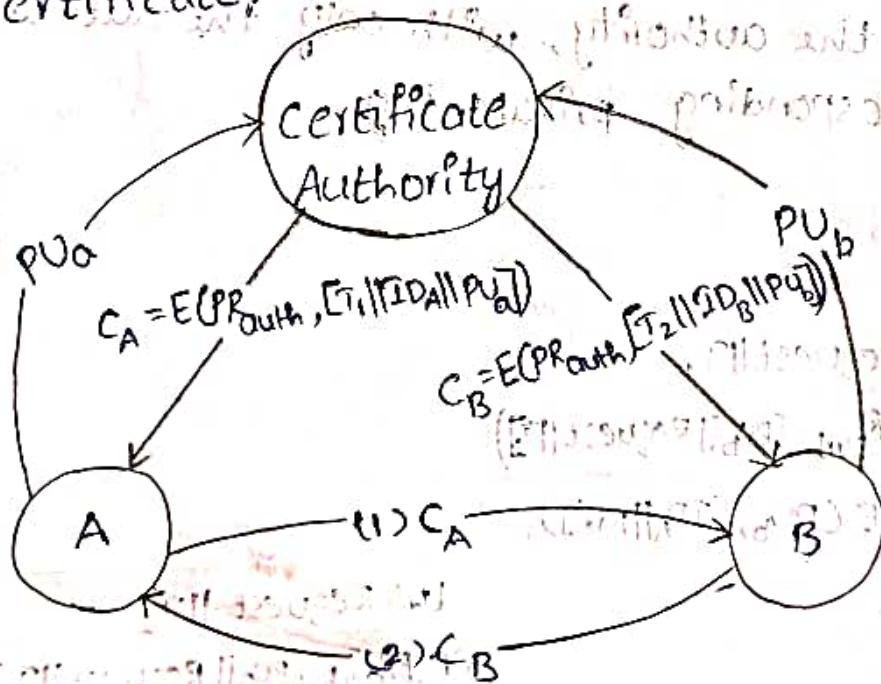 ertificate.
the authority,
Certificate
Authority
PUa
PUb
C_A = E(PR_auth, [T₁||ID_A||PU_a])
C_B = E(PR_auth, [T₂||ID_B||PU_b])
A
(1) C_A
B
(2) C_B